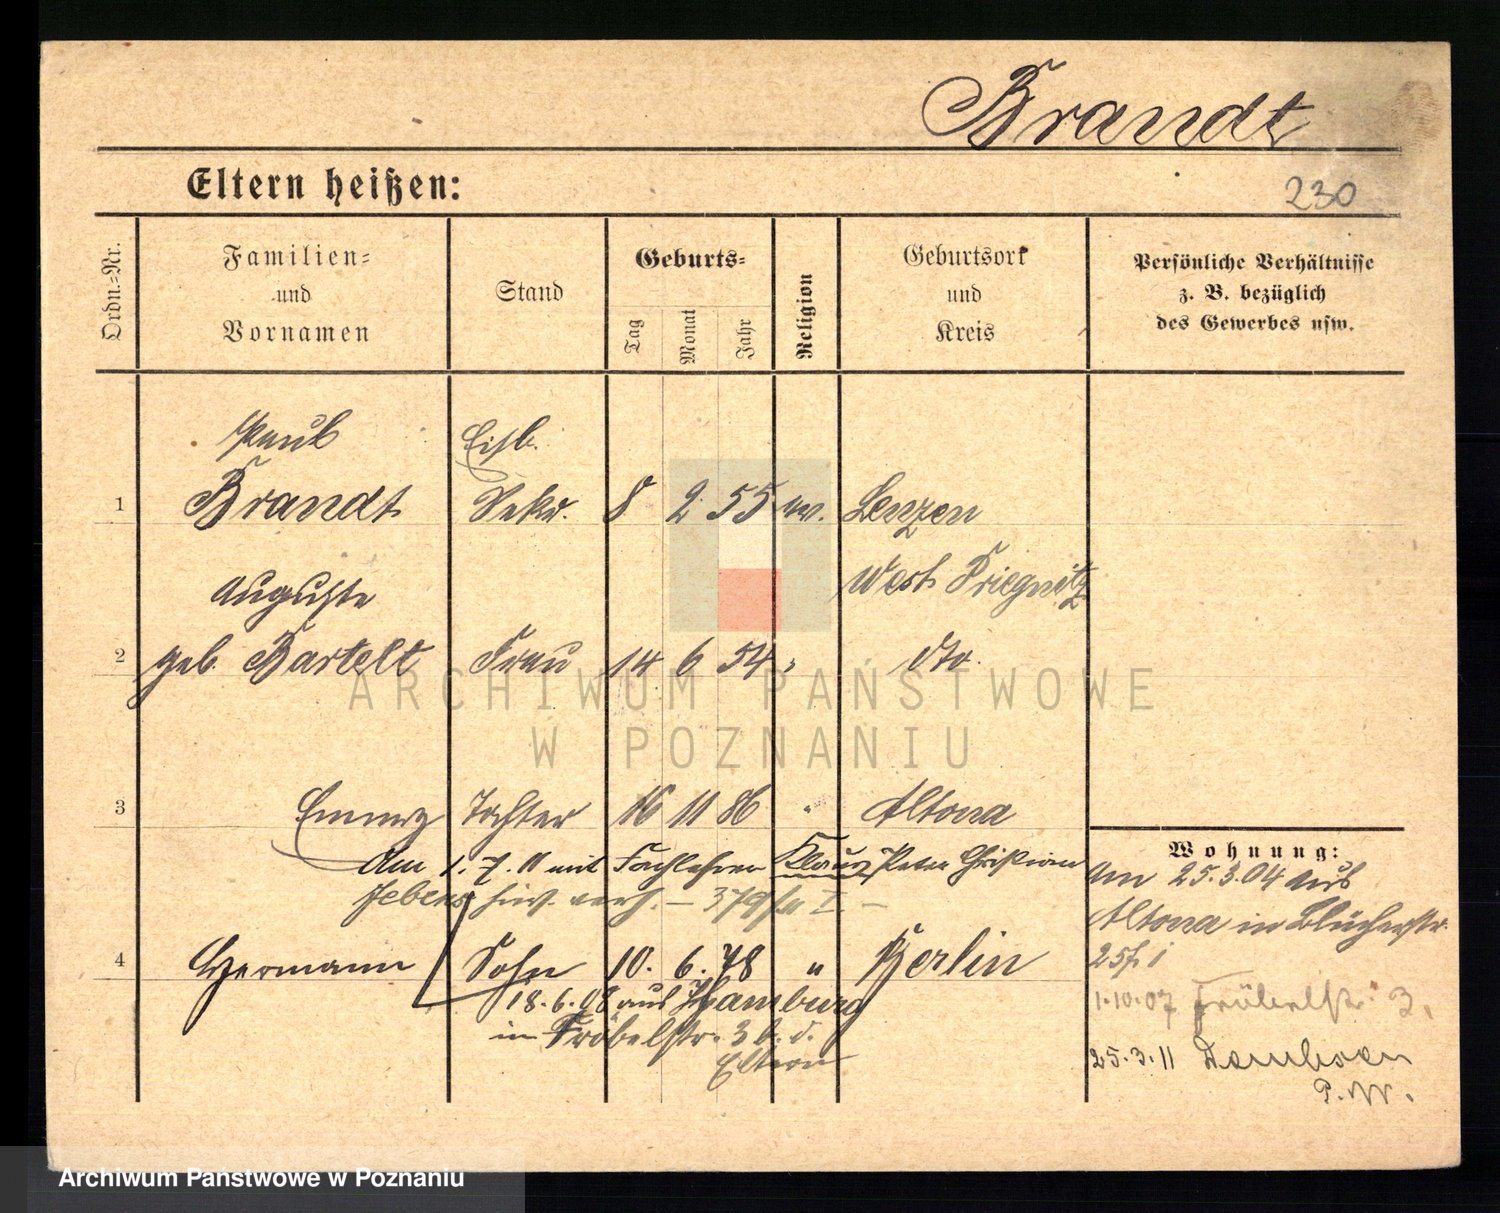 Brandt
Eltern heißen:
230
Ordn.-Nr.
Familien-
und
Vornamen
Stand
Geburts-
Tag
Monat
Jahr
Religion
Geburtsort
und
Kreis
Persönliche Verhältnisse
z. B. bezüglich
des Gewerbes usw.
Paul Eisb.
1 Brandt Sekr. 8 2 55 ev. Lenzen
West Priegnitz
Auguste
2 geb. Bartelt Frau 14 6 54 " dto.
ARCHIWUM PAŃSTWOWE
W POZNANIU
3 Emmy Tochter 16 11 86 " Altona
Am 1.7.11 mit Fachlehrer Klaus Peter Christian
Jebens hier verh. — 379/11 I. —
4 Hermann Sohn 10. 6. 78 " Berlin
18.6.08 aus Hamburg
in Fröbelstr. 3 b. d.
Eltern
Wohnung:
Am 25.3.04 aus
Altona in Blücherstr.
25
1.10.07 Fröbelstr. 3.
25.3.11 Dambrau
P.W.
Archiwum Państwowe w Poznaniu